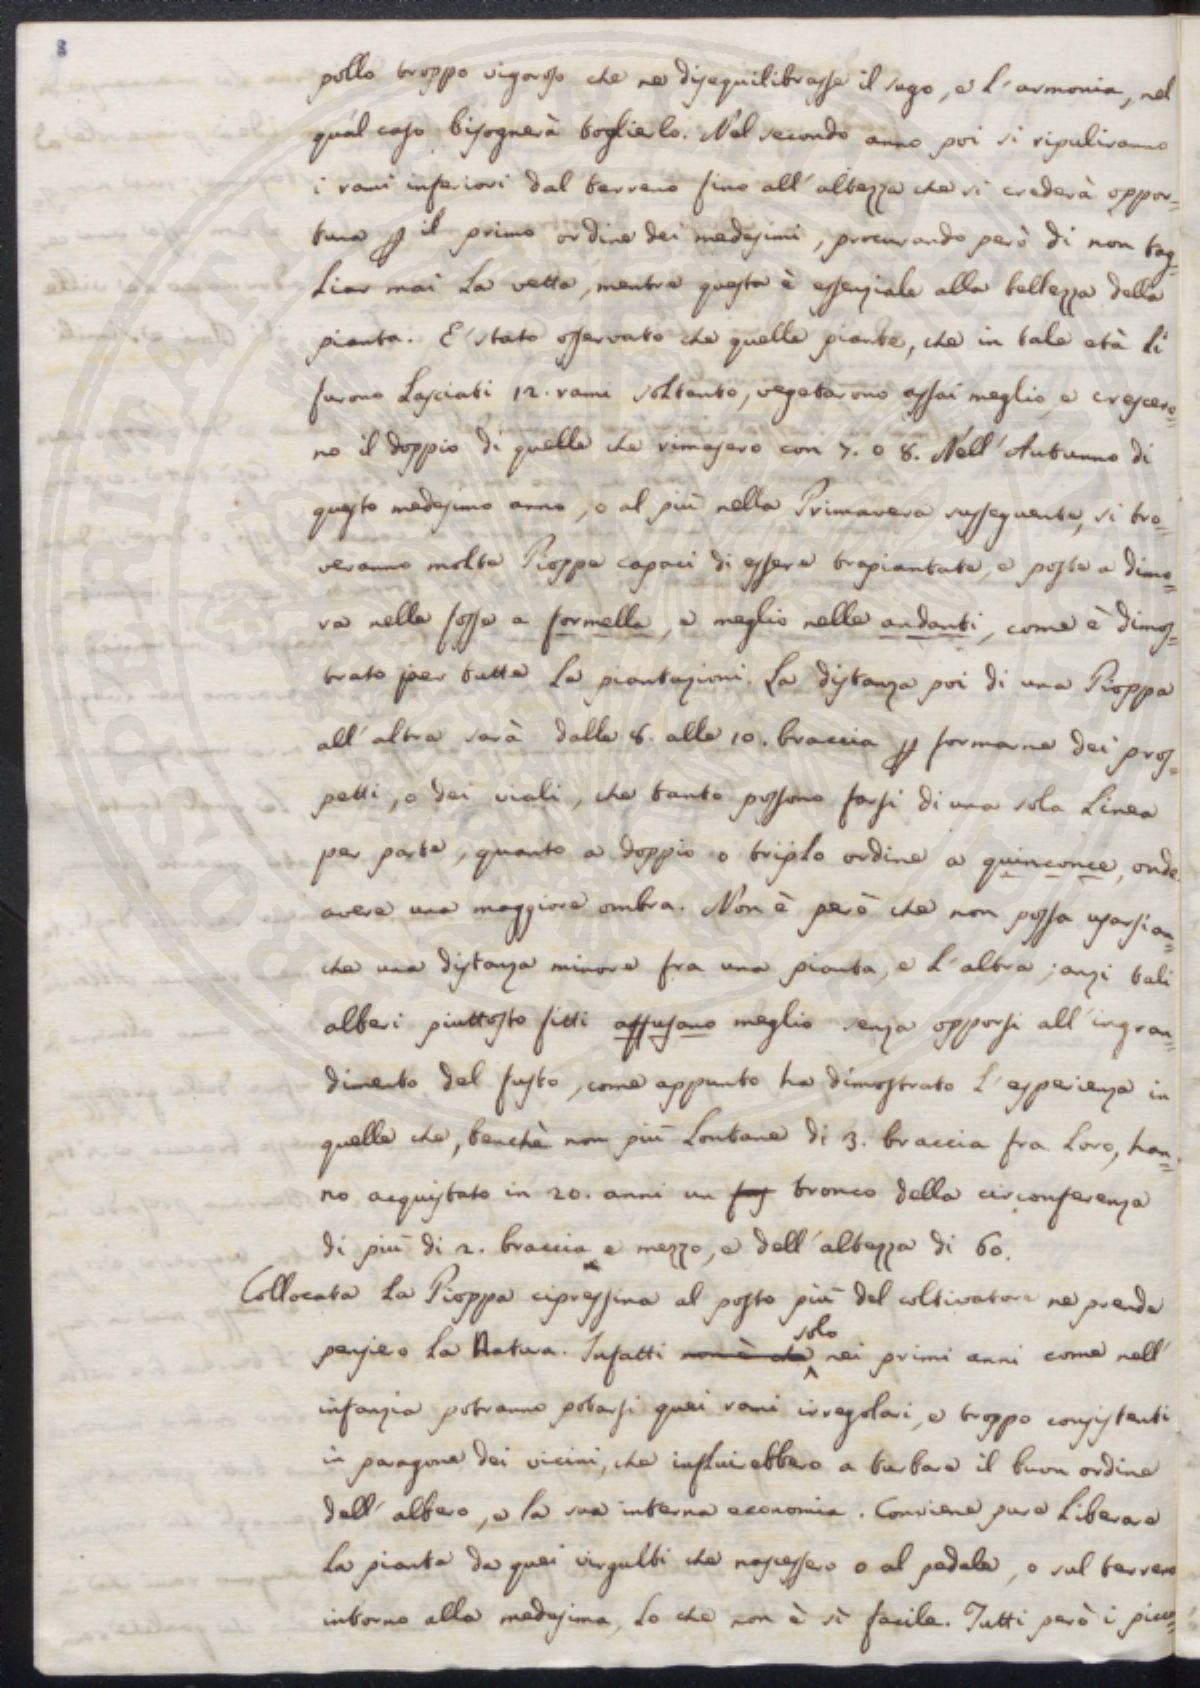 8
pollo troppo vigoroso che ne disequilibrasse il sugo, e l'armonia, nel
qual caso bisognerà toglierlo. Nel secondo anno poi si ripuliranno
i rami inferiori dal terreno fino all'altezza che si crederà oppor=
tuna p il primo ordine dei medesimi, procurando però di non tag=
liar mai la vetta, mentre questa è essenziale alla bellezza della
pianta. E' stato osservato che quelle piante, che in tale età li
furono lasciati 12. rami soltanto, vegetarono assai meglio, e crescero=
no il doppio di quelle che rimasero con 7. o 8. Nell'Autunno di
questo medesimo anno, o al più nella Primavera susseguente, si tro=
veranno molte Pioppe capaci di essere trapiantate, e poste a dimo=
ra nelle fosse a formella, e meglio nelle andanti, come è dimos=
trato per tutte le piantazioni. La distanza poi di una Pioppa
all'altra sarà dalle 8. alle 10. braccia p formarne dei pros=
petti, o dei viali, che tanto possono farsi di una sola linea
per parte, quanto a doppio o triplo ordine a quinconce, onde
avere una maggiore ombra. Non è però che non possa usarsi an=
che una distanza minore fra una pianta, e l'altra; anzi tali
alberi piuttosto fitti affusano meglio senza opporsi all'ingran=
dimento del fusto, come appunto ha dimostrato l'esperienza in
quelle che, benchè non più lontane di 3. braccia fra loro, han=
no acquistato in 20. anni un fus tronco della circonferenza
di più di 2. braccia e mezzo, e dell'altezza di 60.
Collocata la Pioppa cipressina al posto più del coltivatore ne prende
pensiero la Natura. Infatti non è che solo nei primi anni come nell'
infanzia potranno potarsi quei rami irregolari, e troppo consistenti
in paragone dei vicini, che influirebbero a turbare il buon ordine
dell'albero, e la sua interna economia. Conviene pure liberare
la pianta da quei virgulti che nascessero o al pedale, o sul terreno
intorno alla medesima, lo che non è sì facile. Tutti però i picco=
PROSPERITATI